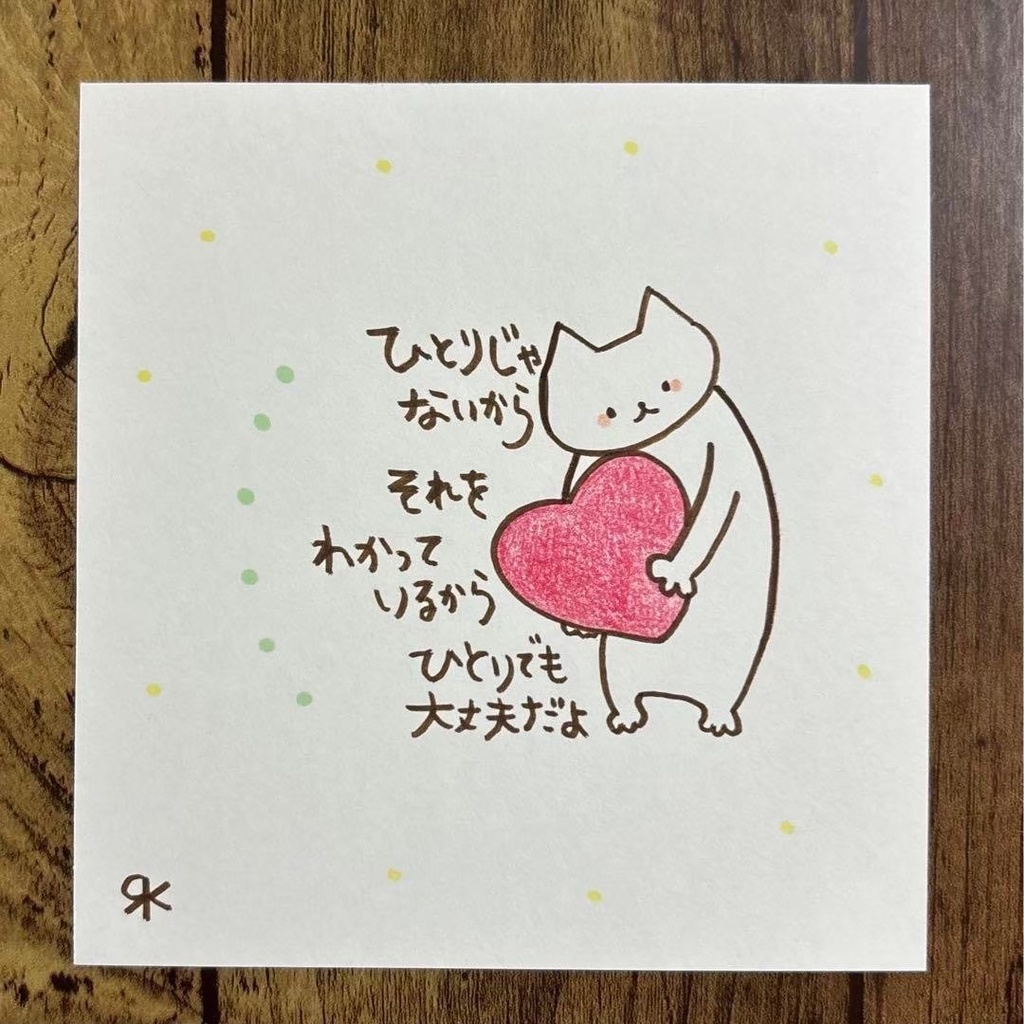 ひとりじゃ
ないから
それを
わかって
いるから
ひとりでも
大丈夫だよ
RK